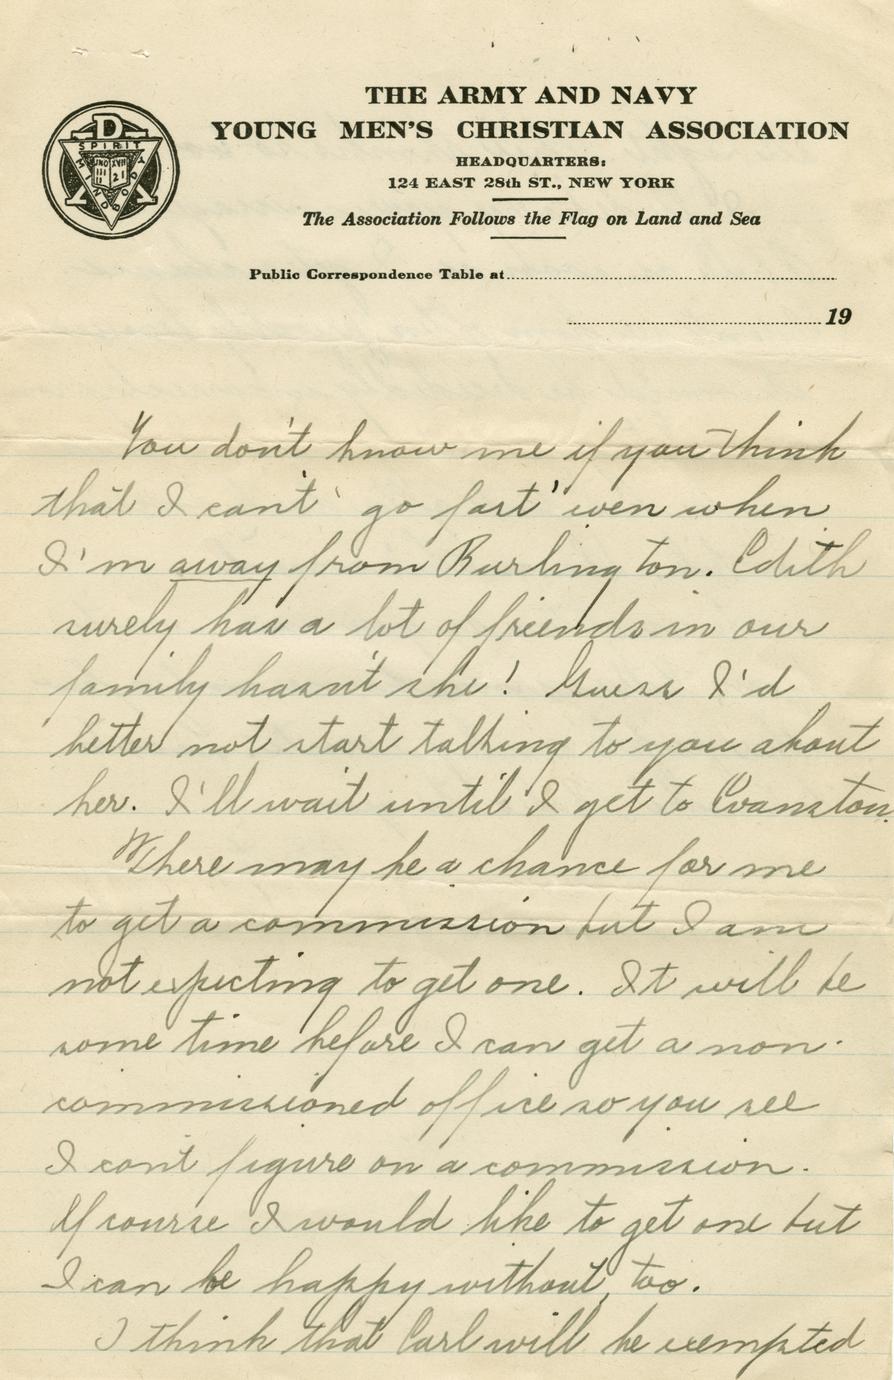 THE ARMY AND NAVY
YOUNG MEN'S CHRISTIAN ASSOCIATION
HEADQUARTERS:
124 EAST 28th ST., NEW YORK
The Association Follows the Flag on Land and Sea
Public Correspondence Table at
19
SPIRIT
MIND
BODY
JNO XVII
III
II 21
You don't know me if you think
that I can't "go fast" even when
I'm away from Burlington. Edith
surely has a lot of friends in our
family hasn't she! Guess I'd
better not start talking to you about
her. I'll wait until I get to Evanston.
There may be a chance for me
to get a commission but I am
not expecting to get one. It will be
some time before I can get a non-
commissioned office so you see
I can't figure on a commission.
Of course I would like to get one but
I can be happy without, too.
I think that Carl will be exempted